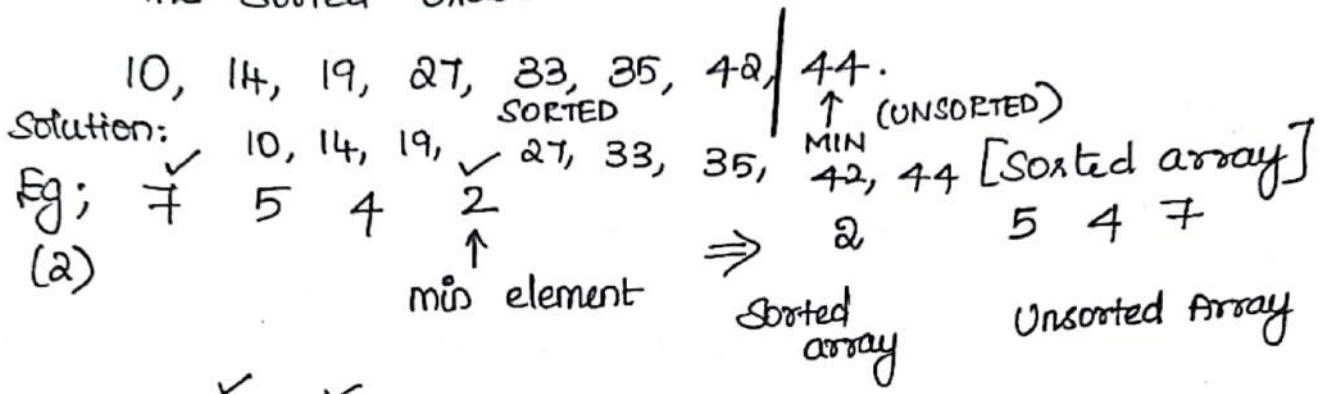 10, 14, 19, 27, 33, 35, 42, 44.
SORTED ↑ (UNSORTED)
MIN
Solution: 10, 14, 19, 27, 33, 35, 42, 44 [Sorted array]
Eg; 7 5 4 2 ⇒ 2 5 4 7
(2) ↑
min element Sorted array Unsorted Array